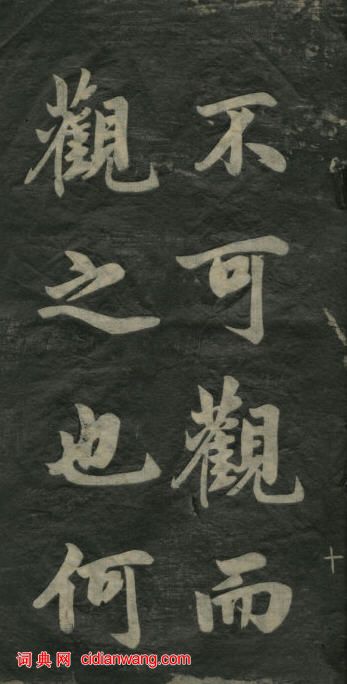 不可觀而
觀之也何
词典网 cidianwang.com